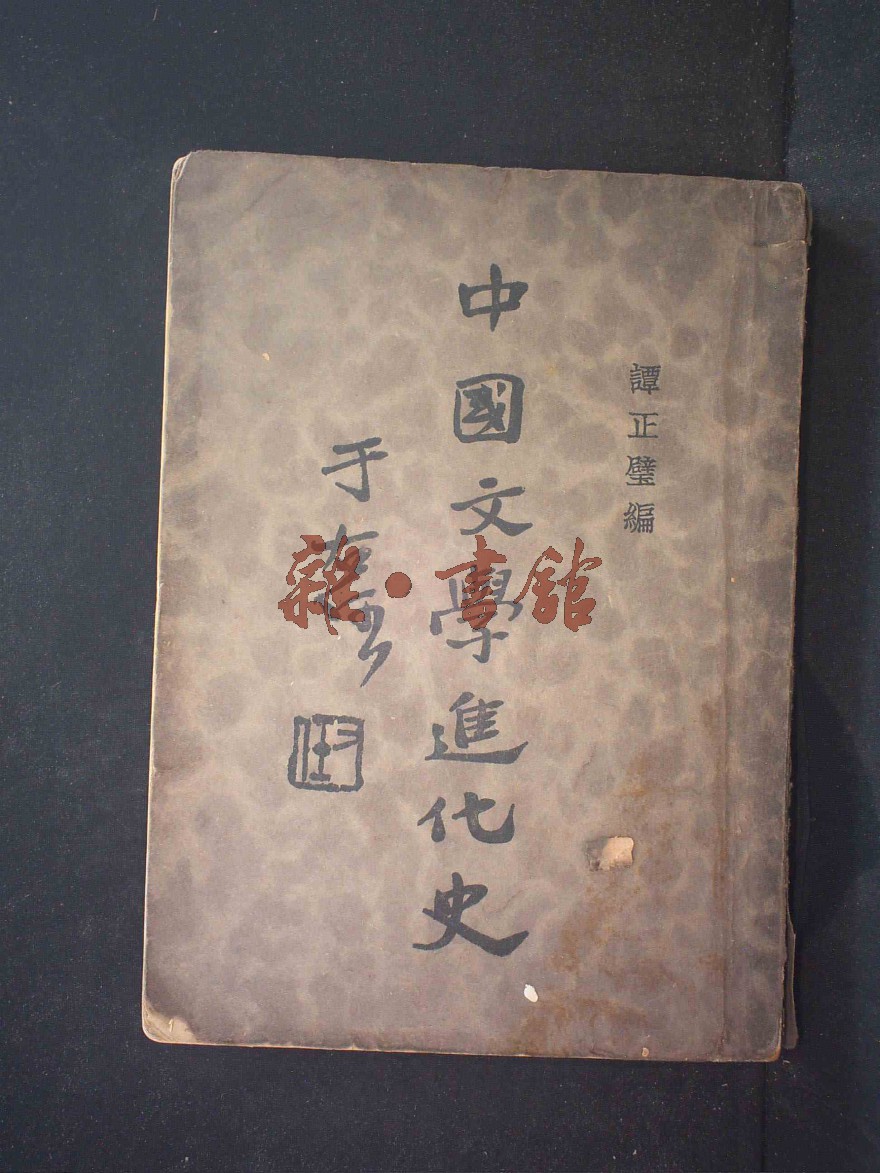 譚正璧編
中國文學進化史
于
雜·書館